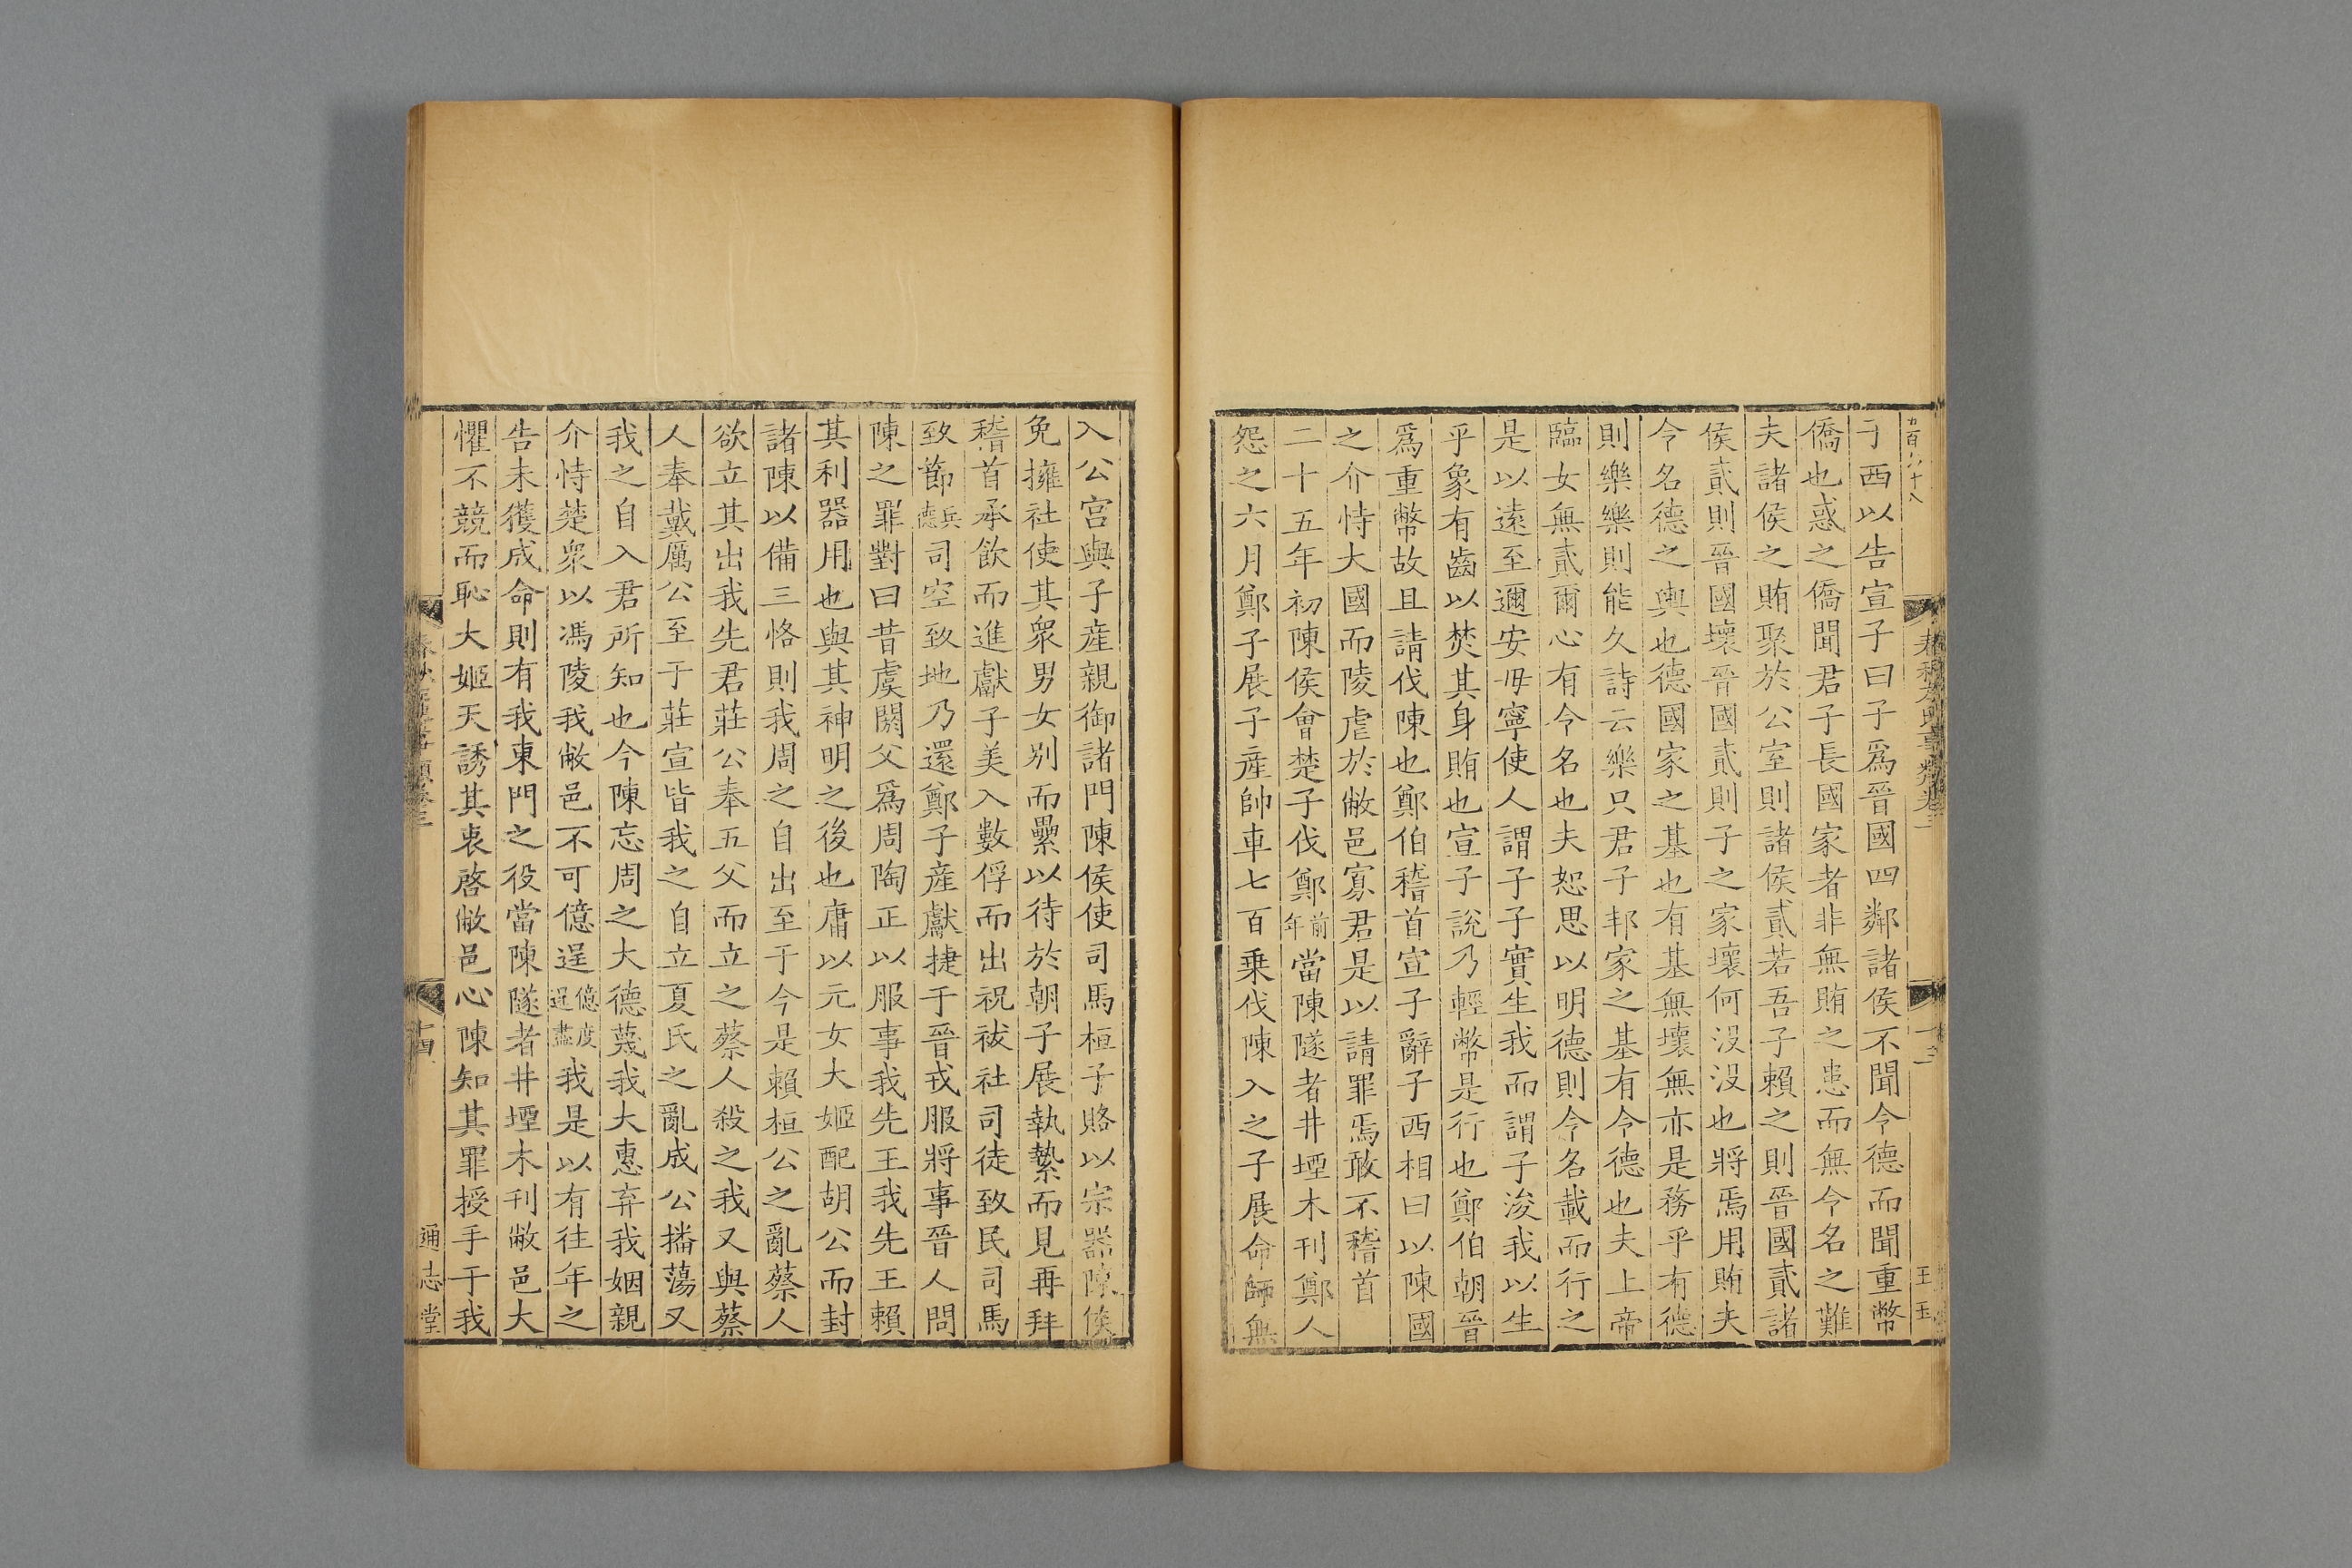 于西以告宣子曰子爲晉國四鄰諸侯不聞令德而聞重幣
僑也惑之僑聞君子長國家者非無賄之患而無令名之難
夫諸侯之賄聚於公室則諸侯貳若吾子賴之則晉國貳諸
侯貳則晉國壞晉國貳則子之家壞何沒沒也將焉用賄夫
令名德之輿也德國家之基也有基無壞無亦是務乎有德
則樂樂則能久詩云樂只君子邦家之基有令德也夫上帝
臨女無貳爾心有令名也夫恕思以明德則令名載而行之
是以遠至邇安毋寧使人謂子子實生我而謂子浚我以生
乎象有齒以焚其身賄也宣子說乃輕幣是行也鄭伯朝晉
爲重幣故且請伐陳也鄭伯稽首宣子辭子西相曰以陳國
之介恃大國而陵虐於敝邑寡君是以請罪焉敢不稽首
二十五年初陳侯會楚子伐鄭前年當陳隧者井堙木刊鄭人
怨之六月鄭子展子産帥車七百乗伐陳入之子展命師無
入公宮與子産親御諸門陳侯使司馬桓子賂以宗器陳侯
免擁社使其衆男女别而纍以待於朝子展執縶而見再拜
稽首承飲而進獻子美入數俘而出祝祓社司徒致民司馬
致節兵符司空致地乃還鄭子産獻捷于晉戎服將事晉人問
陳之罪對曰昔虞閼父爲周陶正以服事我先王我先王賴
其利器用也與其神明之後也庸以元女大姬配胡公而封
諸陳以備三恪則我周之自出至于今是賴桓公之亂蔡人
欲立其出我先君莊公奉五父而立之蔡人殺之我又與蔡
人奉戴厲公至于莊宣皆我之自立夏氏之亂成公播蕩又
我之自入君所知也今陳忘周之大德蔑我大惠弃我姻親
介恃楚衆以馮陵我敝邑不可億逞億度逞盡我是以有往年之
告未獲成命則有我東門之役當陳隧者井堙木刊敝邑大
懼不競而恥大姬天誘其衷啓敝邑心陳知其罪授手于我
十四
通志堂